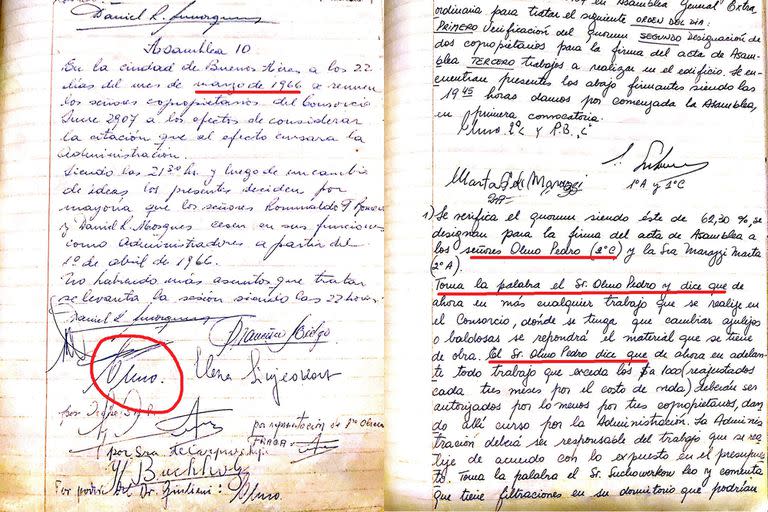 Daniel R.
Asamblea 10
En la ciudad de Buenos Aires a los 22
días del mes de marzo de 1966 se reunen
los señores copropietarios del Consorcio
Sucre 2907 a los efectos de considerar
la citación que al efecto cursara la
Administración.
Siendo las 21³⁰ hs. y luego de un cambio
de ideas los presentes deciden por
mayoría que los señores Romualdo
y Daniel R. cesen en sus funciones
como Administradores a partir del
1º de abril de 1966.
No habiendo más asuntos que tratar
se levanta la sesión siendo las 22 horas.
Daniel R.
Olmo.
Elena
por
por Sra
Por poder del Dr. Giuliani: Olmo.
en Asamblea General Extra
ordinaria para tratar el siguiente ORDEN DEL DIA:
PRIMERO Verificación del Quorum SEGUNDO Designación de
dos copropietarios para la firma del acta de Asam-
blea TERCERO trabajos a realizar en el edificio. Se en-
cuentran presentes los abajo firmantes siendo las
19⁴⁵ horas damos por comenzada la Asamblea,
en primera convocatoria.
Olmo. 2º C y P.B. "C"
Marta G. de Marazzi
1º A y 1º C
1) Se verifica el quorum siendo éste de 62,30 %, se
designan para la firma del acta de Asamblea a
los señores Olmo Pedro (2º C) y la Sra Marazzi Marta
(2º A).
Toma la palabra el Sr. Olmo Pedro y dice que de
ahora en más cualquier trabajo que se realize en
el Consorcio, donde se tenga que cambiar azulejos
o baldosas se repondrá el material que se tiene
de obra. El Sr. Olmo Pedro dice que de ahora en adelan-
te todo trabajo que exceda los $a 1000 (reajustados
cada tres meses por el costo de vida) deberán ser
autorizados por lo menos por tres copropietarios, dan-
do allí curso por la Administración. La Adminis-
tración deberá ser responsable del trabajo que se rea-
lize de acuerdo con lo expuesto en el presupues-
to. Toma la palabra el Sr. Suchowerkow leo y comenta
que tiene filtraciones en su dormitorio que podrían